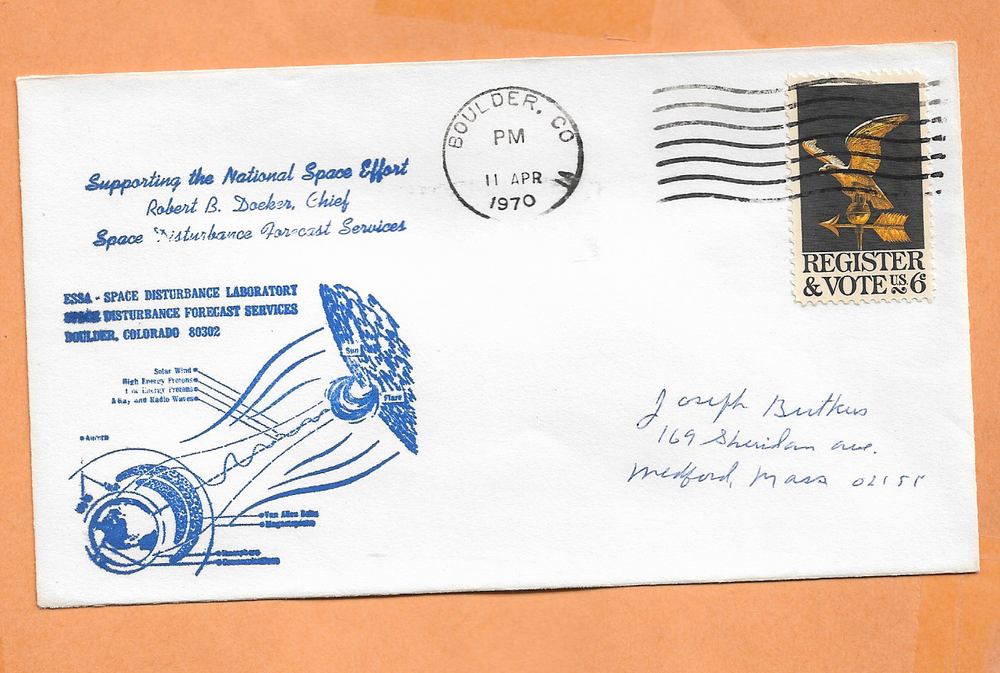 Supporting the National Space Effort
Robert B. Doeker, Chief
Space Disturbance Forecast Services
ESSA - SPACE DISTURBANCE LABORATORY
SPACE DISTURBANCE FORECAST SERVICES
BOULDER, COLORADO 80302
Solar Wind
High Energy Protons
Low Energy Protons
X-Ray and Radio Waves
Aurora
Sun
Flare
Van Allen Belts
Magnetosphere
Ionosphere
Communications
BOULDER, CO
PM
11 APR
1970
REGISTER
& VOTE U.S. 6c
Joseph Butkus
169 Sheridan ave.
Medford, Mass 02155